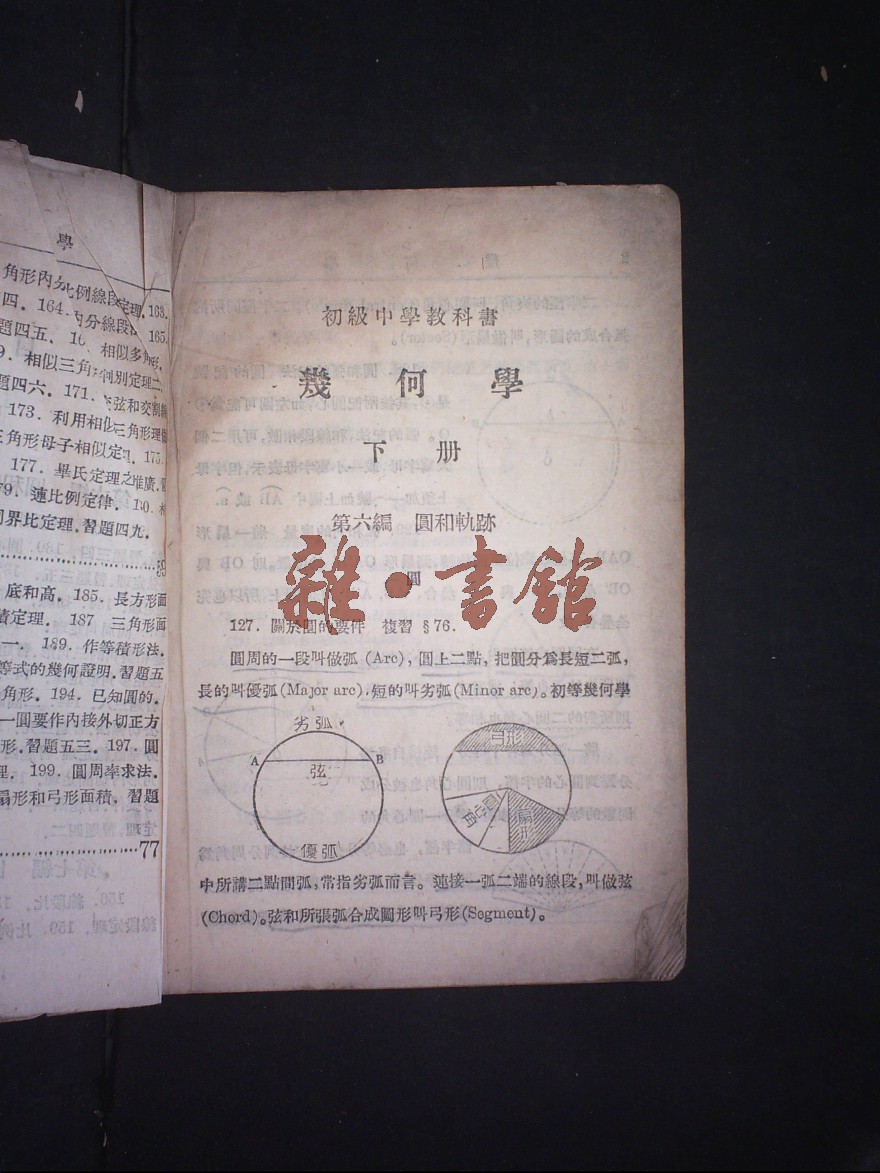 學
角形內分比例線段定理. 163.
四. 164. 內分線段 165.
題四五. 相似多角形.
9. 相似三角 判別定理二.
題四六. 171. 交弦和交割線
173. 利用相似三角形理
三角形母子相似定 175.
177. 畢氏定理之推廣.
79. 連比例定律. 180.
周界比定理. 習題四九.
底和高. 185. 長方形面
積定理. 187 三角形面
一. 189. 作等積形法.
等式的幾何證明. 習題五
角形. 194. 已知圓的.
一圓要作內接外切正方
形. 習題五三. 197. 圓
理. 199. 圓周率求法.
扇形和弓形面積. 習題
77
初級中學教科書
幾何學
下冊
第六編 圓和軌跡
圓
雜·書館
127. 關於圓的要件 複習 §76.
圓周的一段叫做弧 (Arc), 圓上二點, 把圓分爲長短二弧,
長的叫優弧(Major arc), 短的叫劣弧(Minor arc)。初等幾何學
劣弧
A B
弦
優弧
弓形
圓心角
扇形
中所講二點間弧, 常指劣弧而言。連接一弧二端的線段, 叫做弦
(Chord)。弦和所張弧合成圖形叫弓形(Segment)。